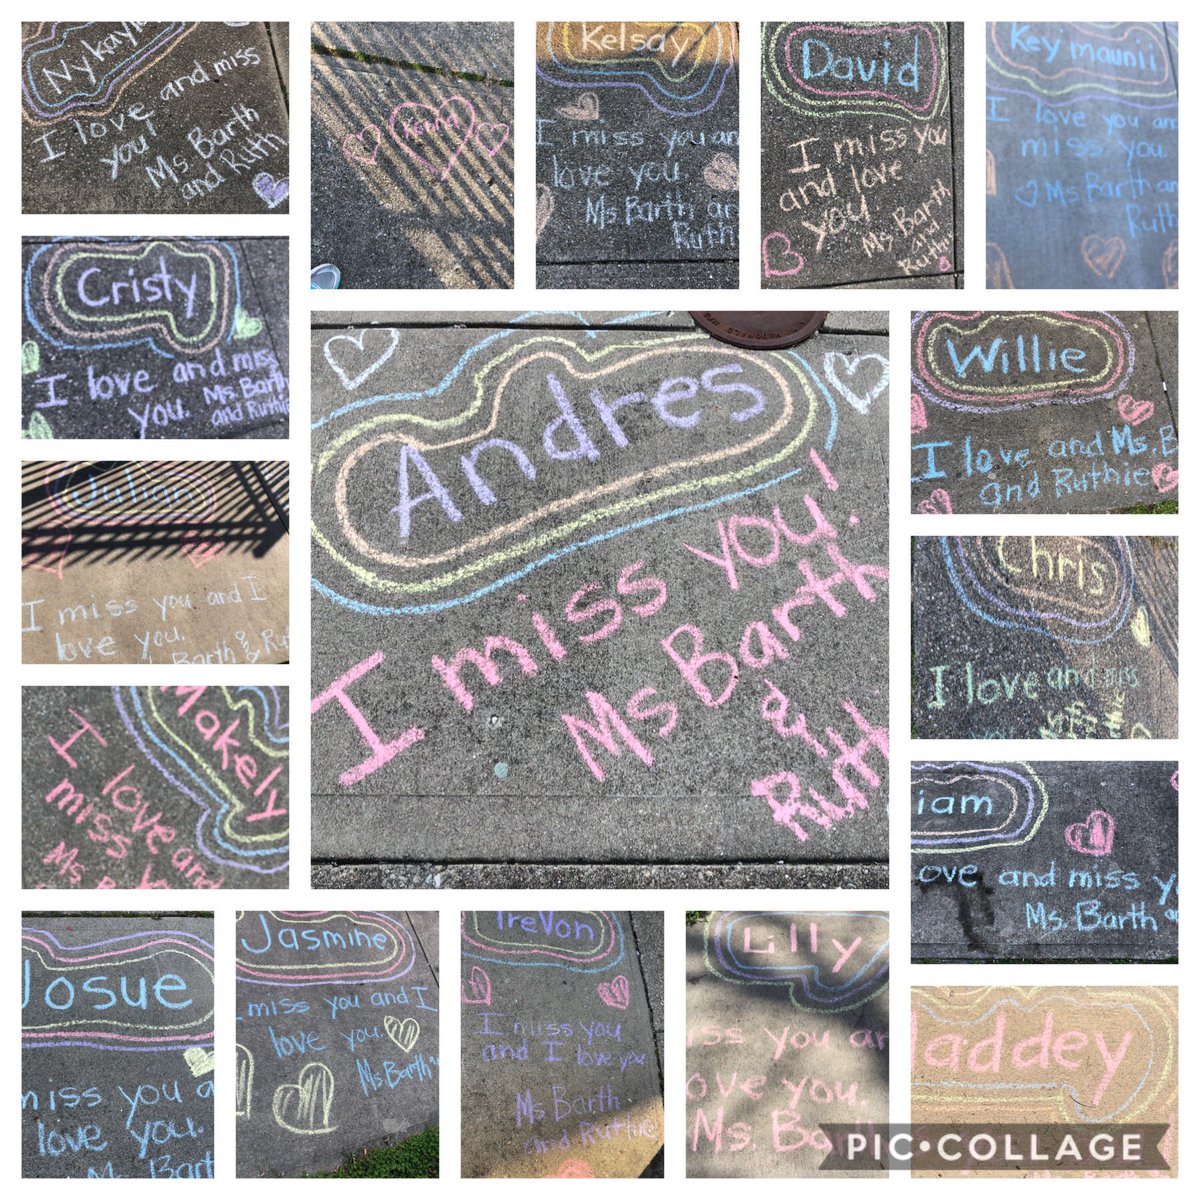 Nykayl
I love and miss
you!
Ms. Barth
and Ruth
Kelsay
I miss you an
love you.
Ms Barth an
Ruth
David
I miss you
and love
you
Ms Barth
and
Ruthie
Key'maunii
I love you an
miss you.
Ms Barth an
Ruthie
Cristy
I love and miss
you. Ms. Barth
and Ruthie
Andres
I miss you!
Ms Barth
&
Ruth
Willie
I love and Ms. B
and Ruthie
Julian
I miss you and I
love you.
Barth & Ru
Chris
I love and miss
Makely
I
love and
miss
Ms. B
iam
ove and miss y
Ms. Barth
Josue
miss you a
love you.
Ms Barth
Jasmine
I miss you and I
love you.
Ms Barth
TreVon
I miss you
and I love you
Ms Barth
and Ruthie
Lilly
iss you an
ove you.
Ms. Ba
addey
PIC•COLLAGE